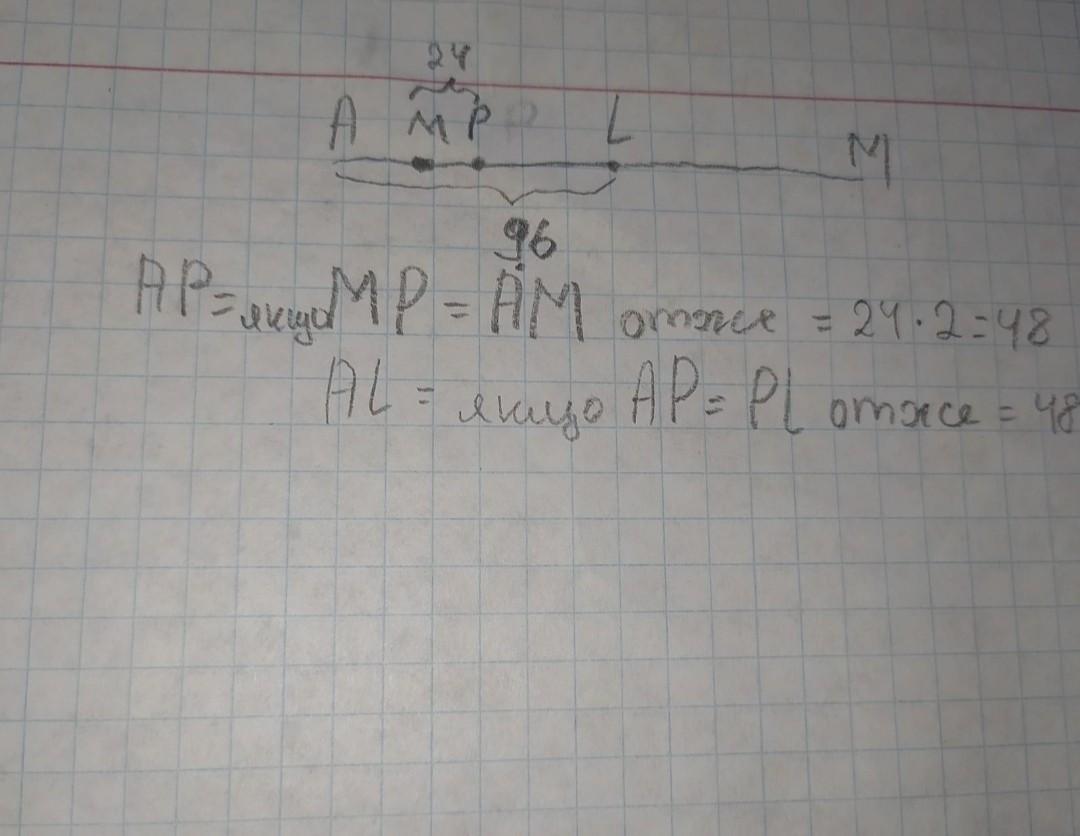 24
A M P L M
96
AP = якщо MP = AM отже = 24·2=48
AL = якщо AP = PL отже = 48